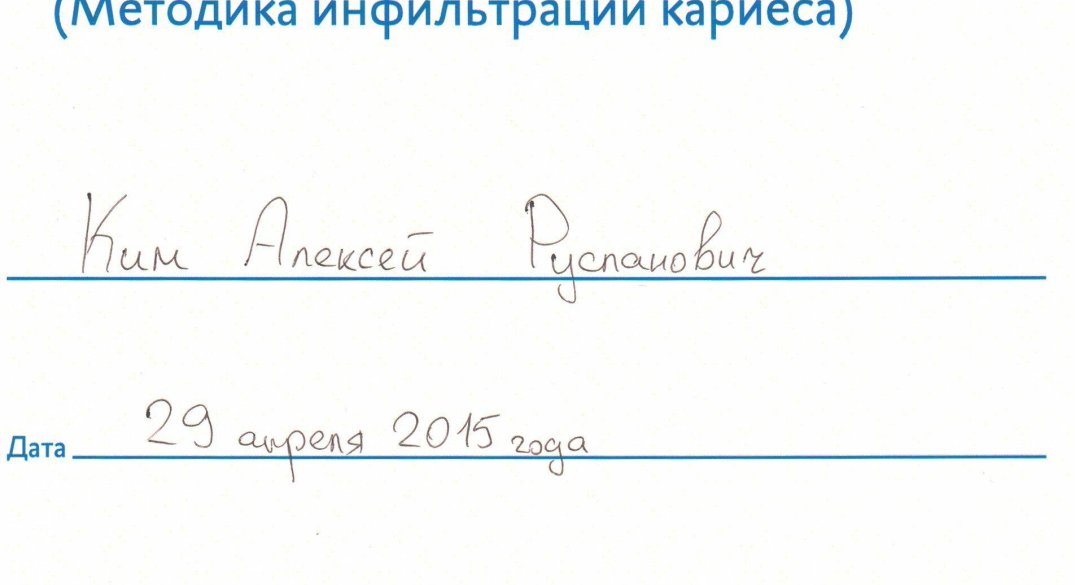 (Методика инфильтрации кариеса)
Ким Алексей Русланович
Дата 29 апреля 2015 года